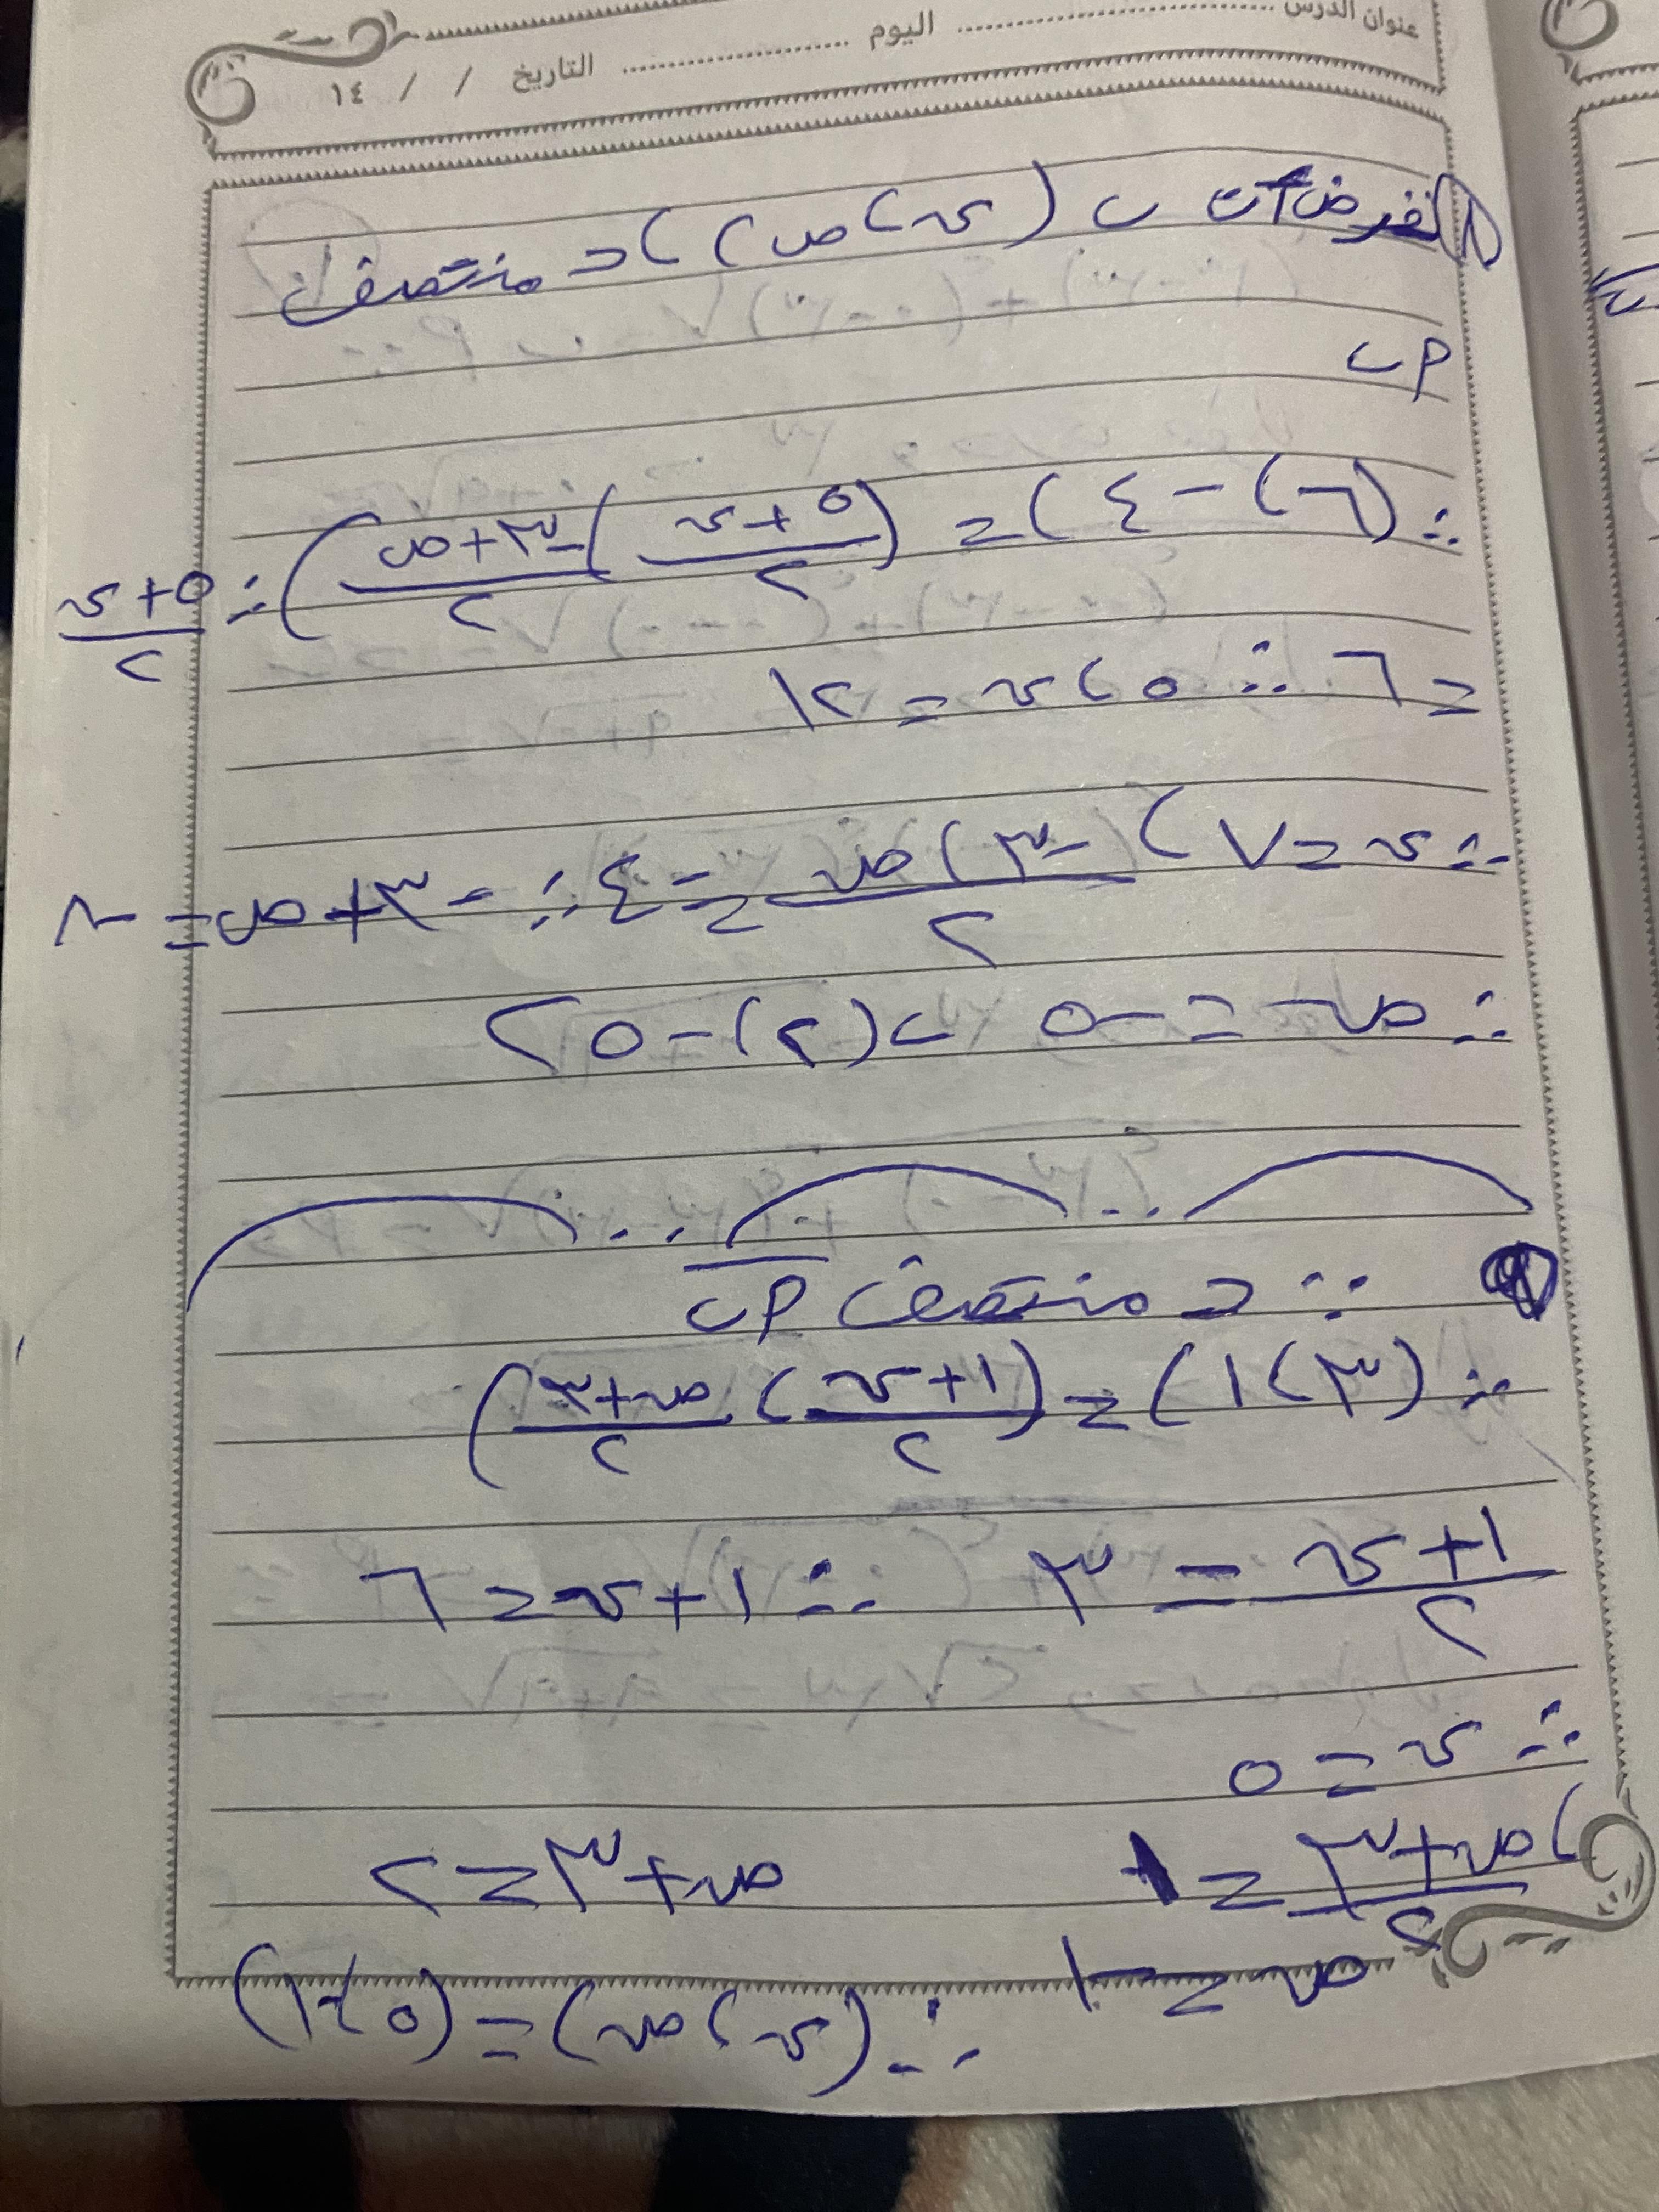 عنوان الدرس ............ اليوم ............ التاريخ / / ١٤
بفرض أن ب (س، ص)، د منتصف
أ ب
∴ (٦، -٤) = (٥+س/٢، -٣+ص/٢) ∴ ٥+س/٢
= ٦ ∴ ٥، س = ١٢
∴ س = ٧، -٣، ص/٢ = -٤ ∴ -٣+ص = -٨
∴ ص = -٥ ب (٢، -٥)
∵ د منتصف أ ب
∴ (٣، ١) = (١+س/٢، ص+٣/٢)
١+س/٢ = ٣ ∴ ١+س = ٦
∴ س = ٥
، ص+٣/٢ = ١ ص+٣ = ٢
ص = -١
∴ (س، ص) = (٥، -١)